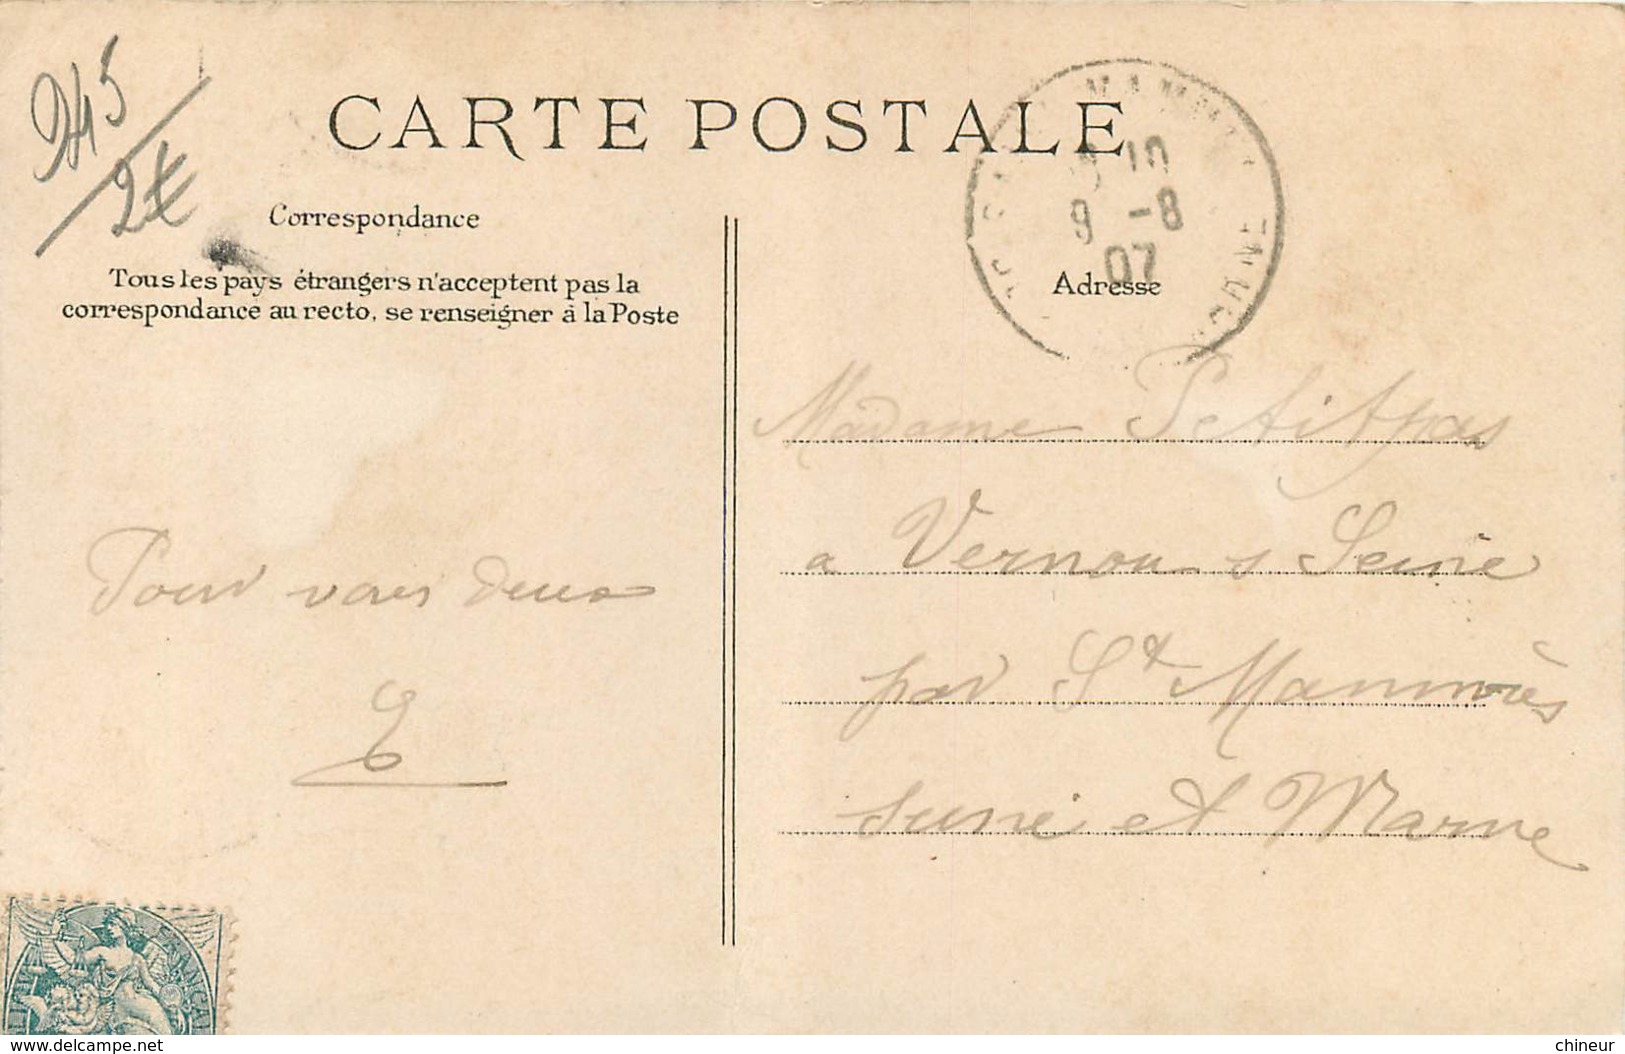 245
2€
CARTE POSTALE
Correspondance
Tous les pays étrangers n'acceptent pas la
correspondance au recto, se renseigner à la Poste
Pour vous deux
E
10
9 -8
07
Adresse
Madame Petitpas
a Vernou s Seine
par St Mammès
seine et Marne
www.delcampe.net
chineur